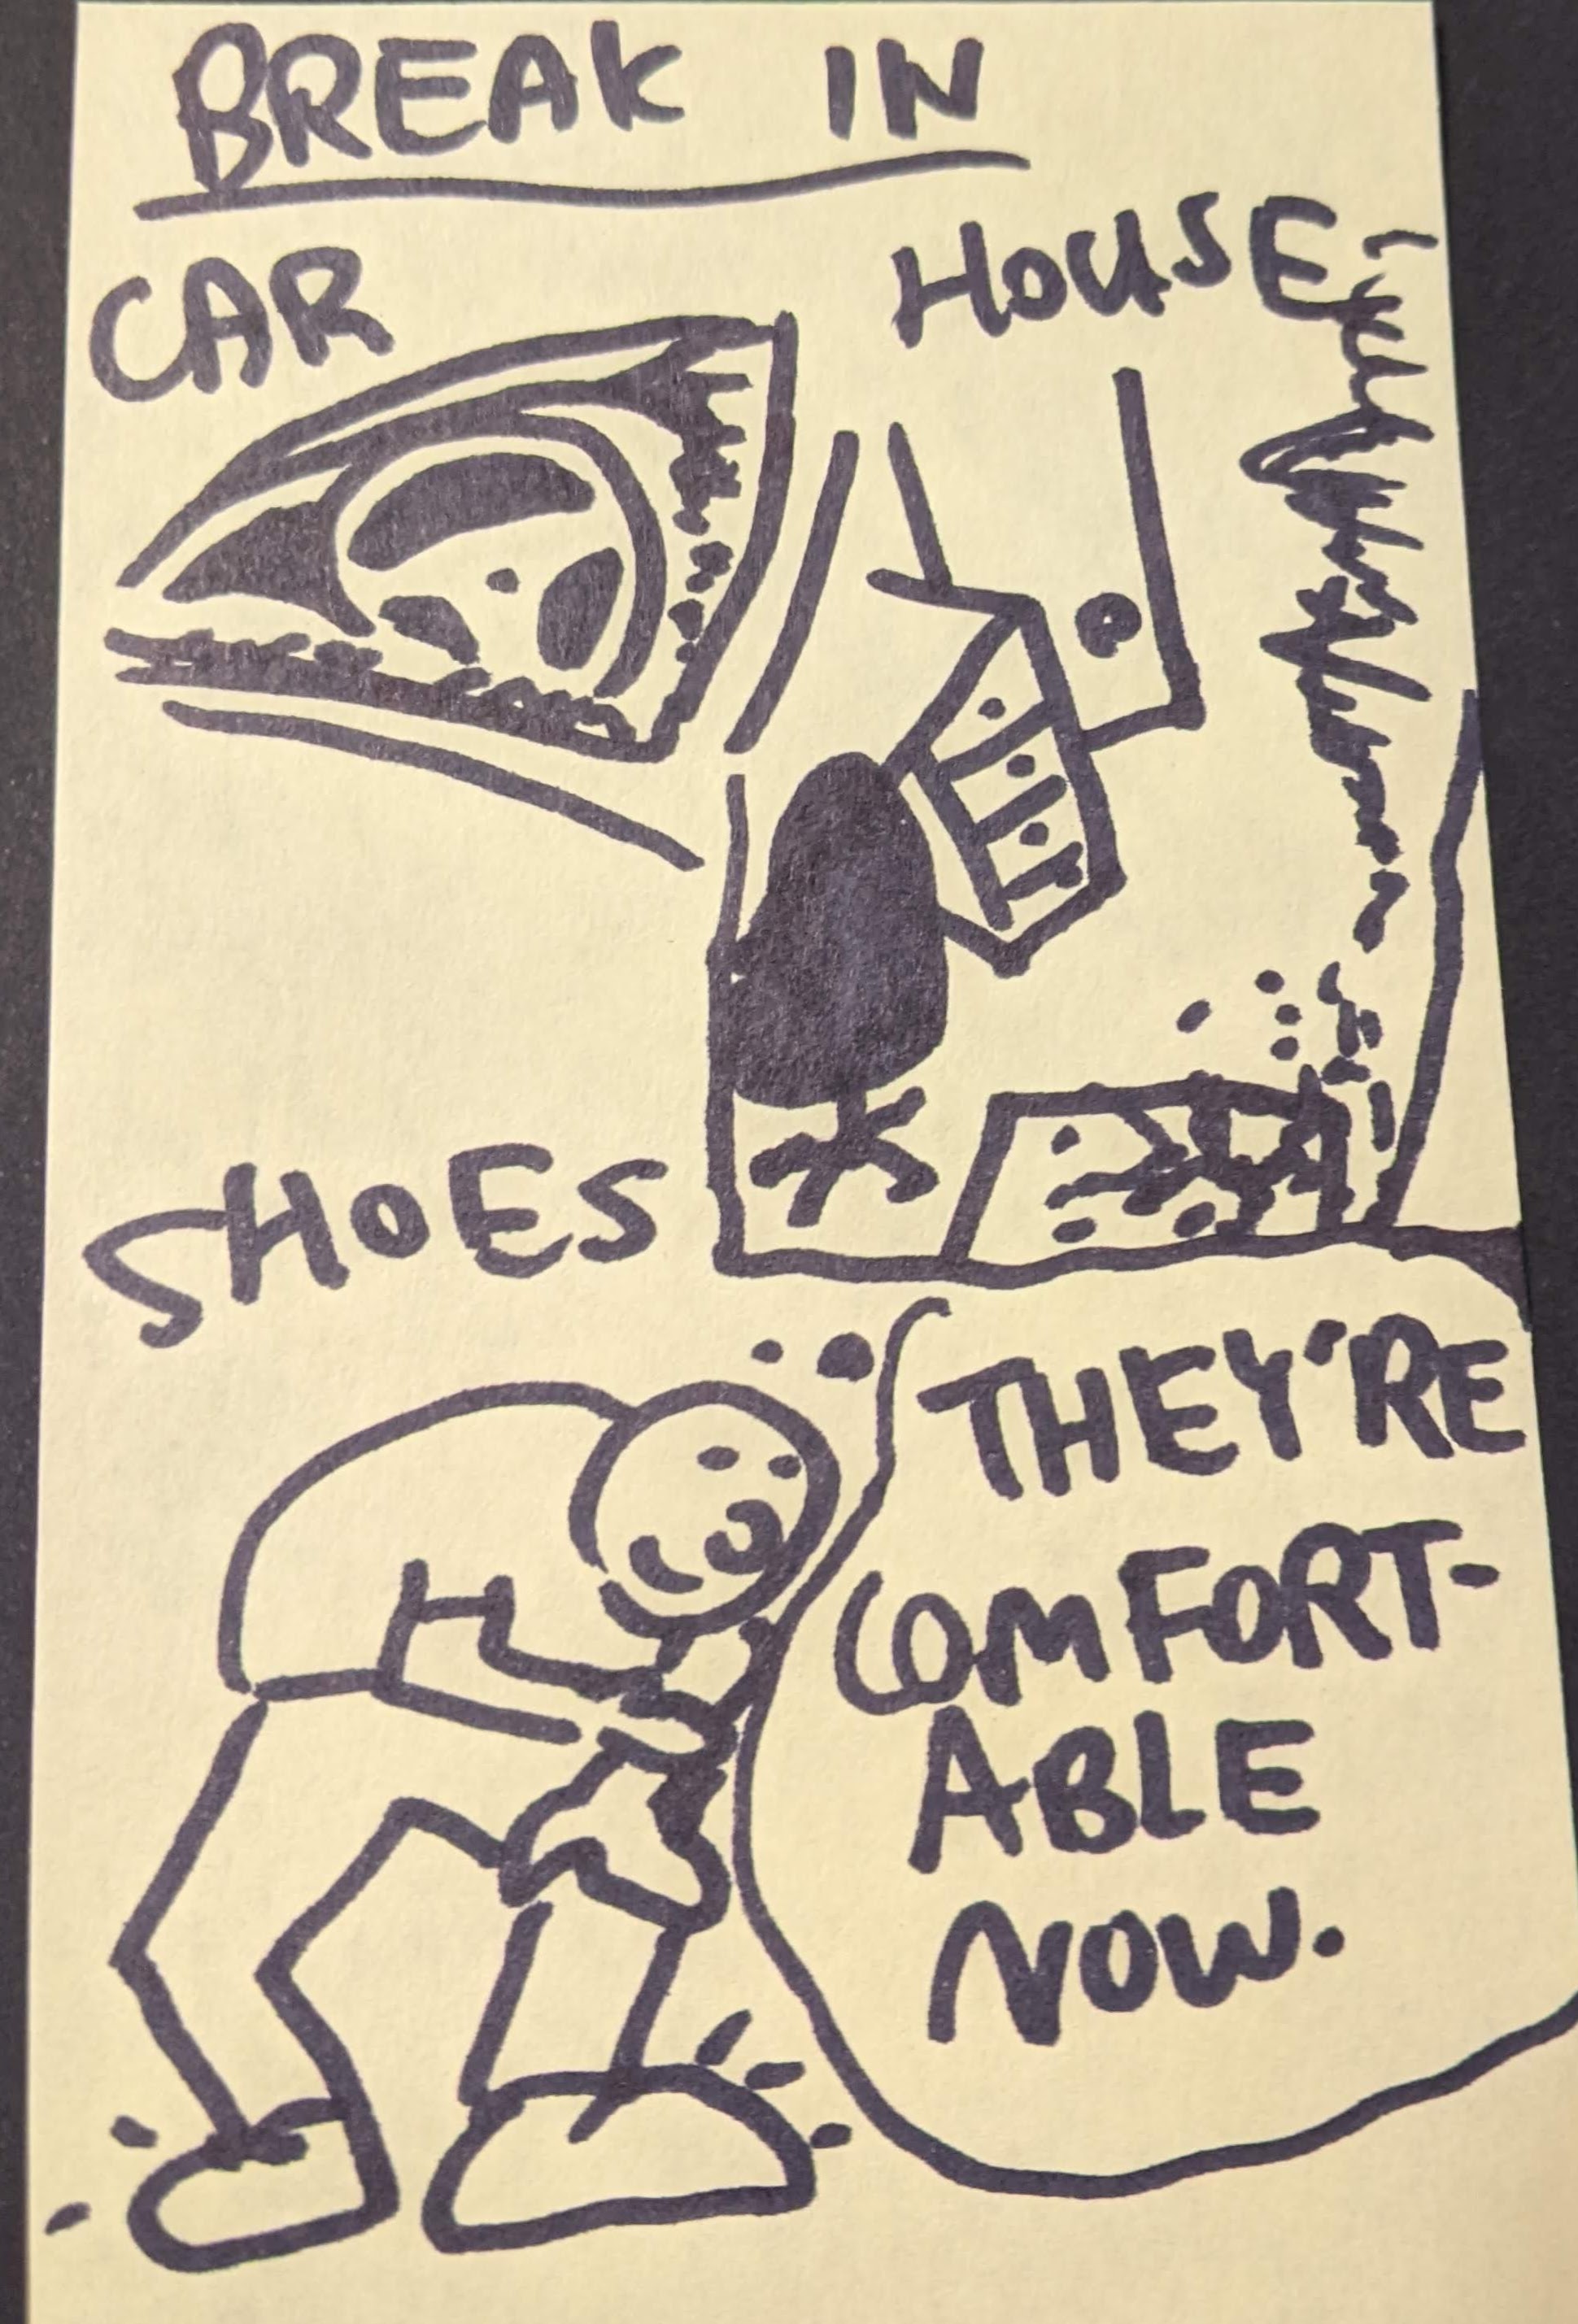 BREAK IN
CAR
HOUSE
SHOES
THEY'RE
COMFORT-
ABLE
NOW.